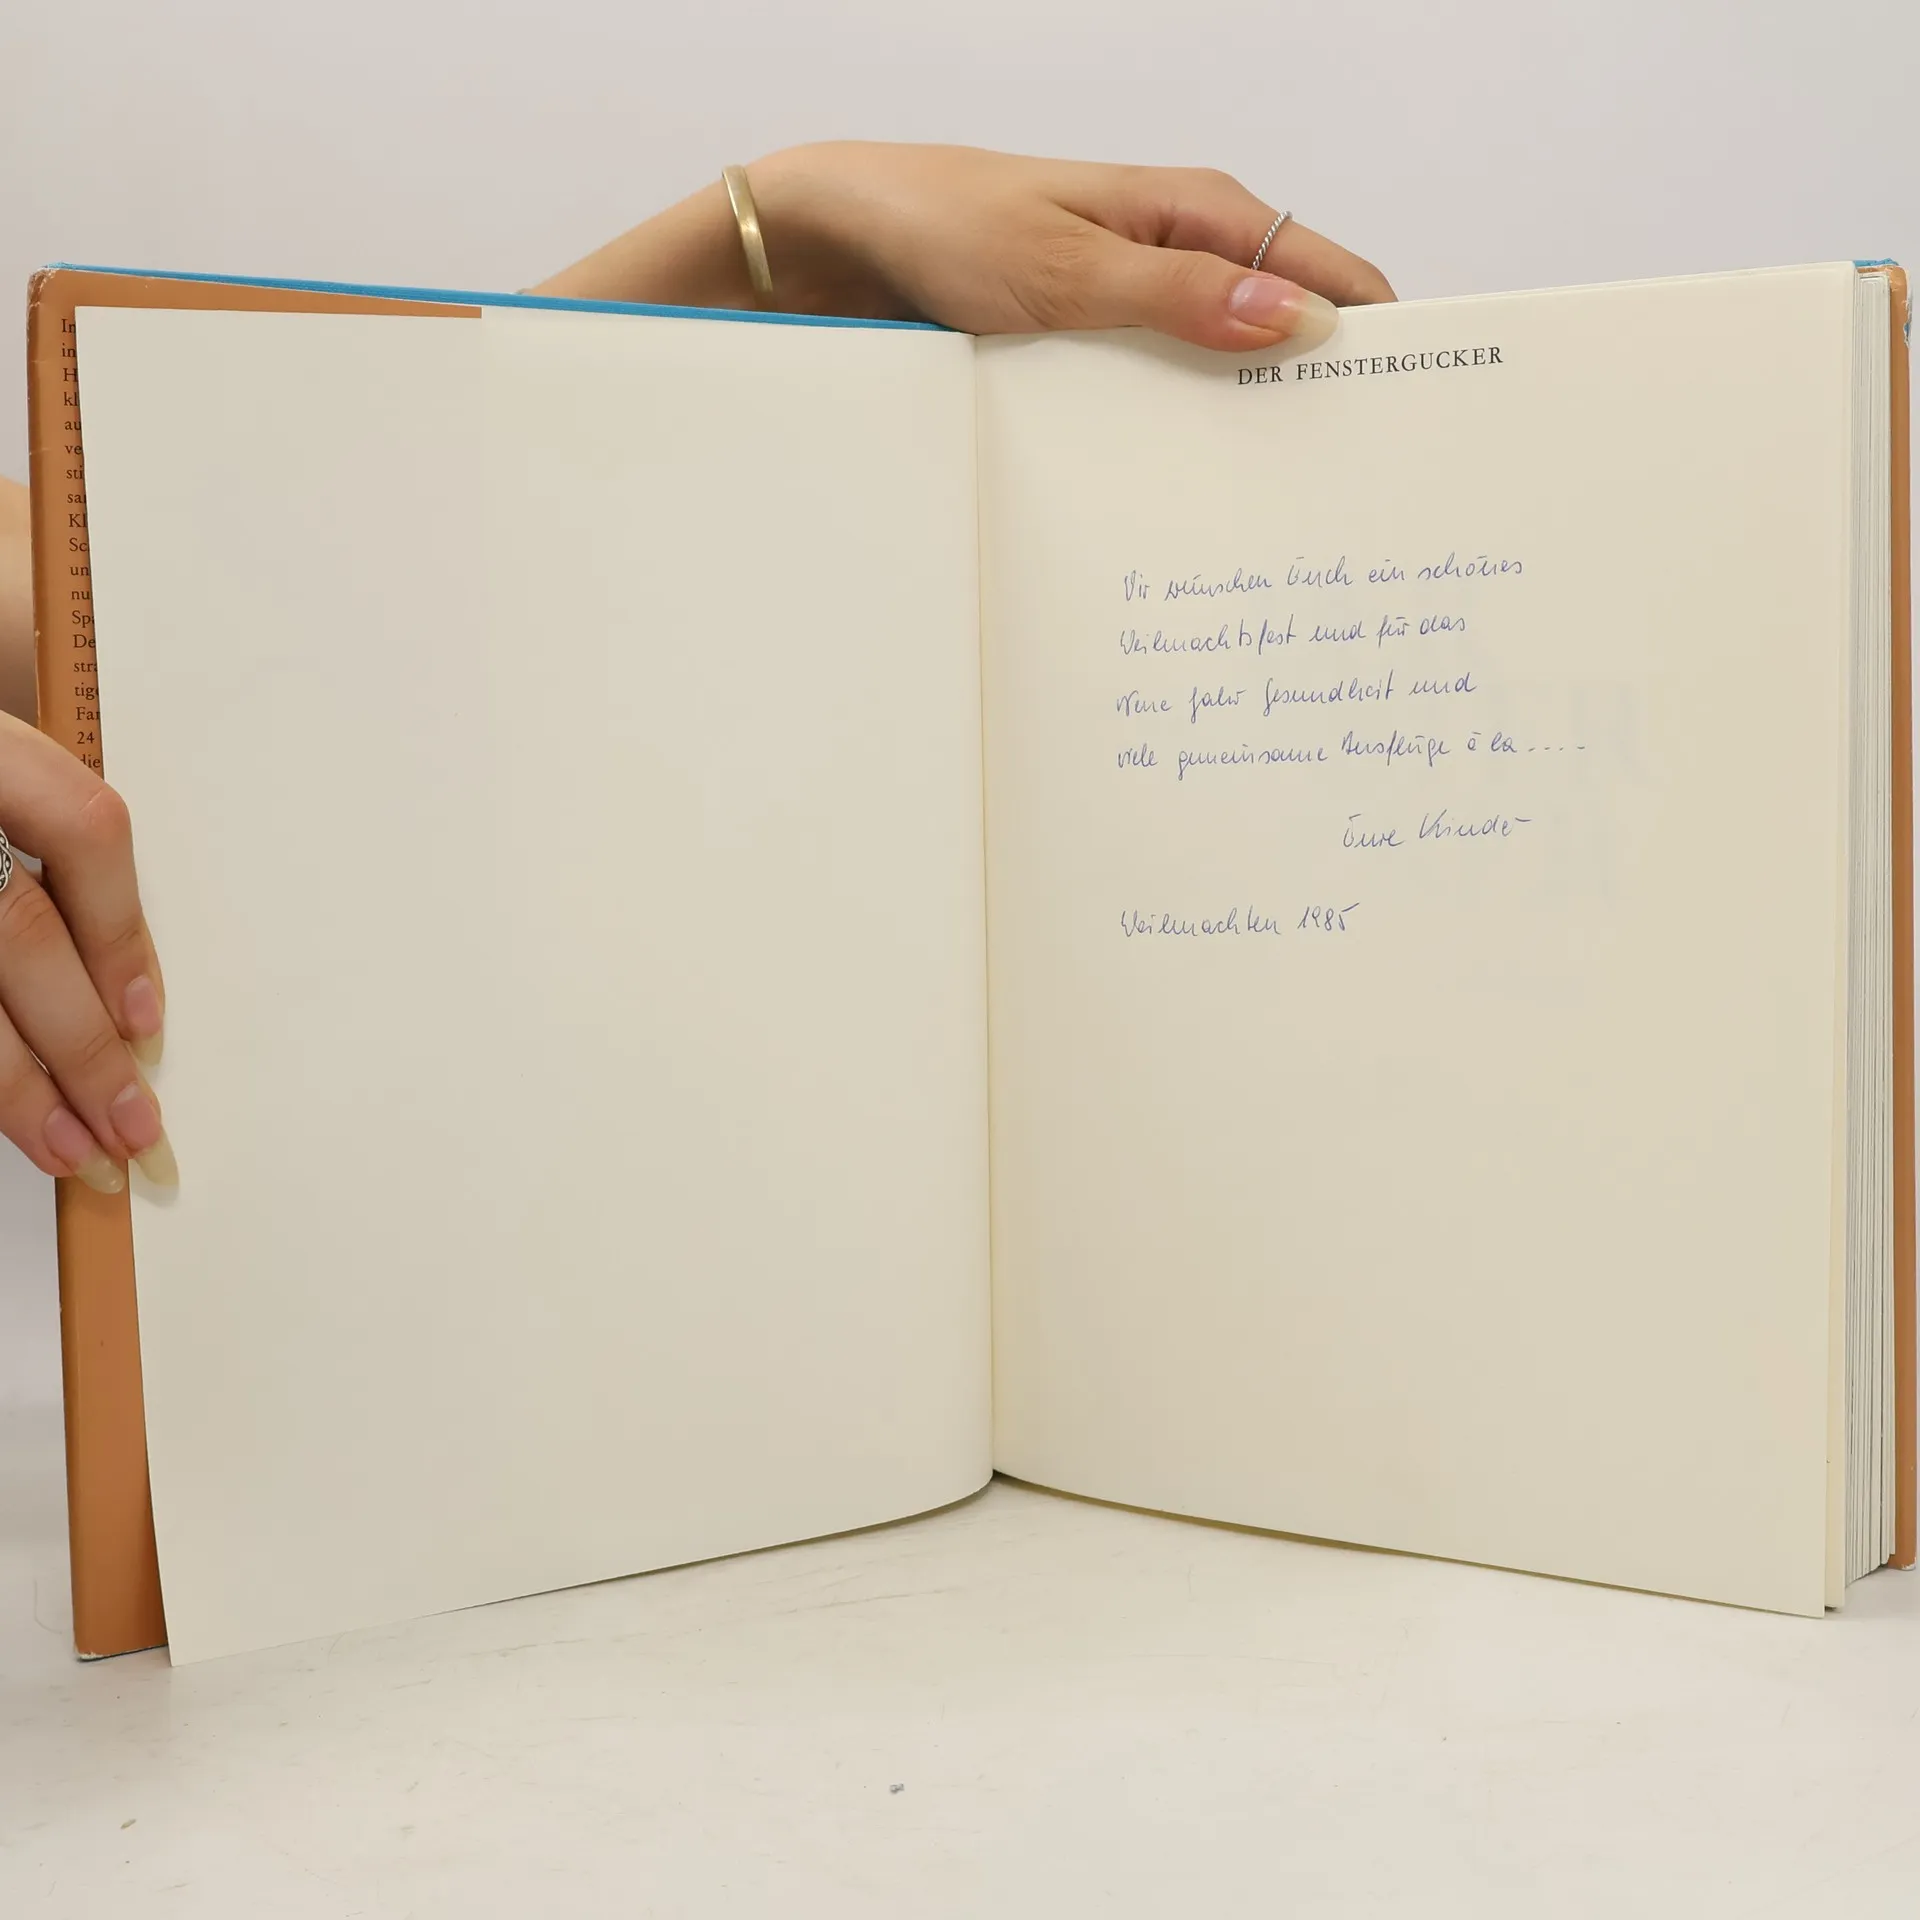 In
in
H
kl
au
ve
sti
sa
Kl
Sc
un
nu
Sp
De
stra
tig
Fa
24
die
DER FENSTERGUCKER
Wir wünschen Euch ein schönes
Weihnachtsfest und für das
Neue Jahr Gesundheit und
viele gemeinsame Ausflüge à la ....
Eure Kinder
Weihnachten 1985